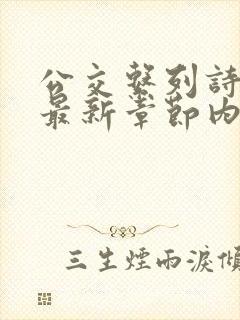 公交繫列詩
最新章節內
三生煙雨淚傾